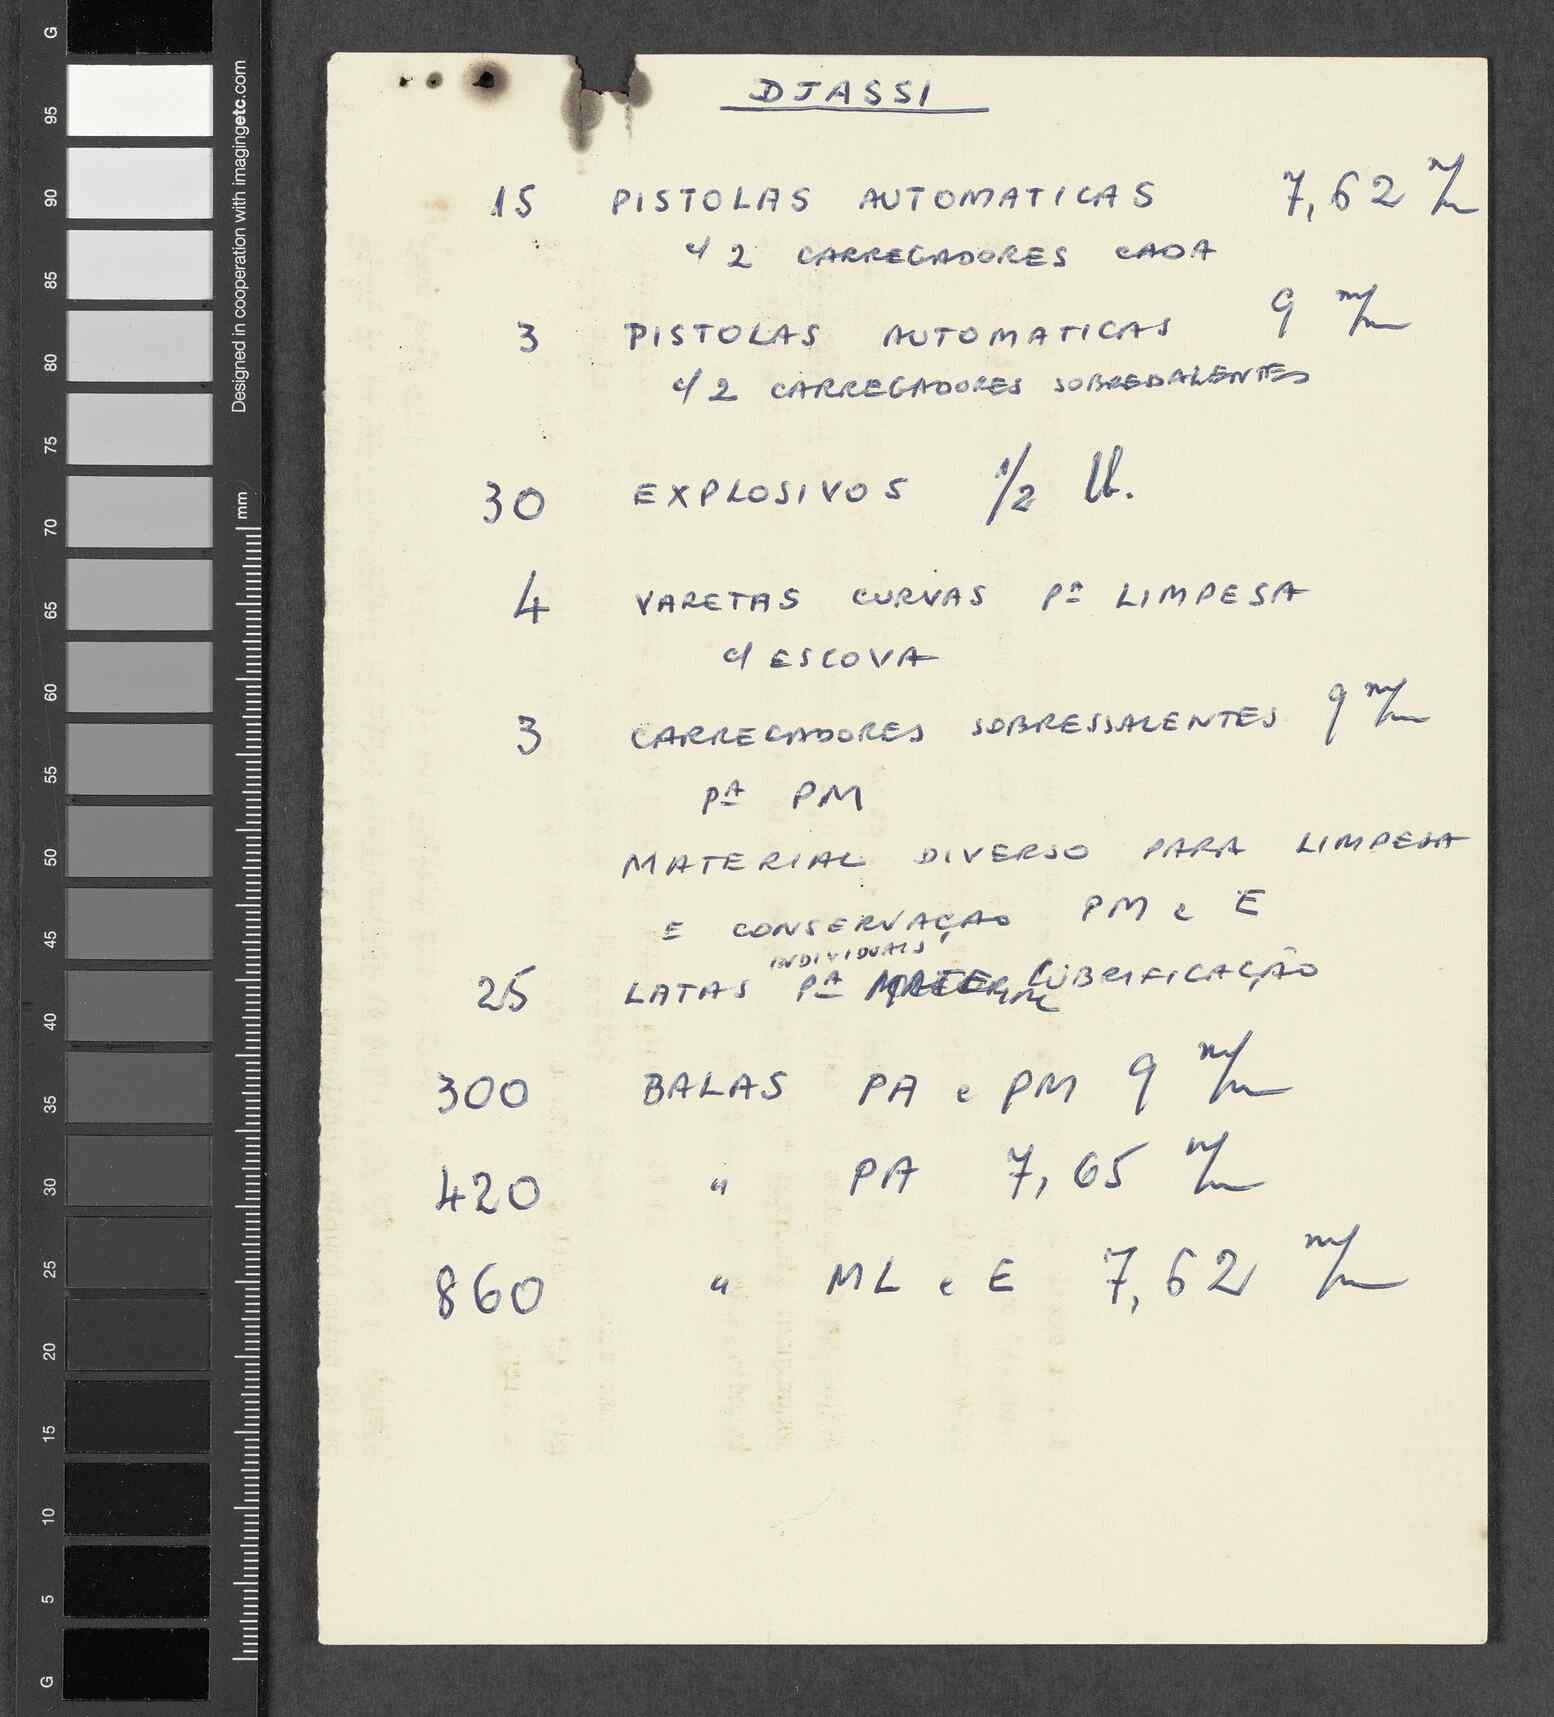 DJASSI
15 PISTOLAS AUTOMATICAS 7,62 m/m
c/ 2 CARREGADORES CADA
3 PISTOLAS AUTOMATICAS 9 m/m
c/ 2 CARREGADORES SOBRESALENTES
30 EXPLOSIVOS 1/2 lb.
4 VARETAS CURVAS Pª LIMPESA
c/ ESCOVA
3 CARREGADORES SOBRESSALENTES 9 m/m
Pª PM
MATERIAL DIVERSO PARA LIMPESA
E CONSERVAÇAO PM e E
INDIVIDUAIS
25 LATAS Pª LUBRIFICAÇÃO
300 BALAS PA e PM 9 m/m
420 " PA 7,65 m/m
860 " ML e E 7,62 m/m
G 95 90 85 80 75 70 65 60 55 50 45 40 35 30 25 20 15 10 5 G
Designed in cooperation with imagingetc.com
mm